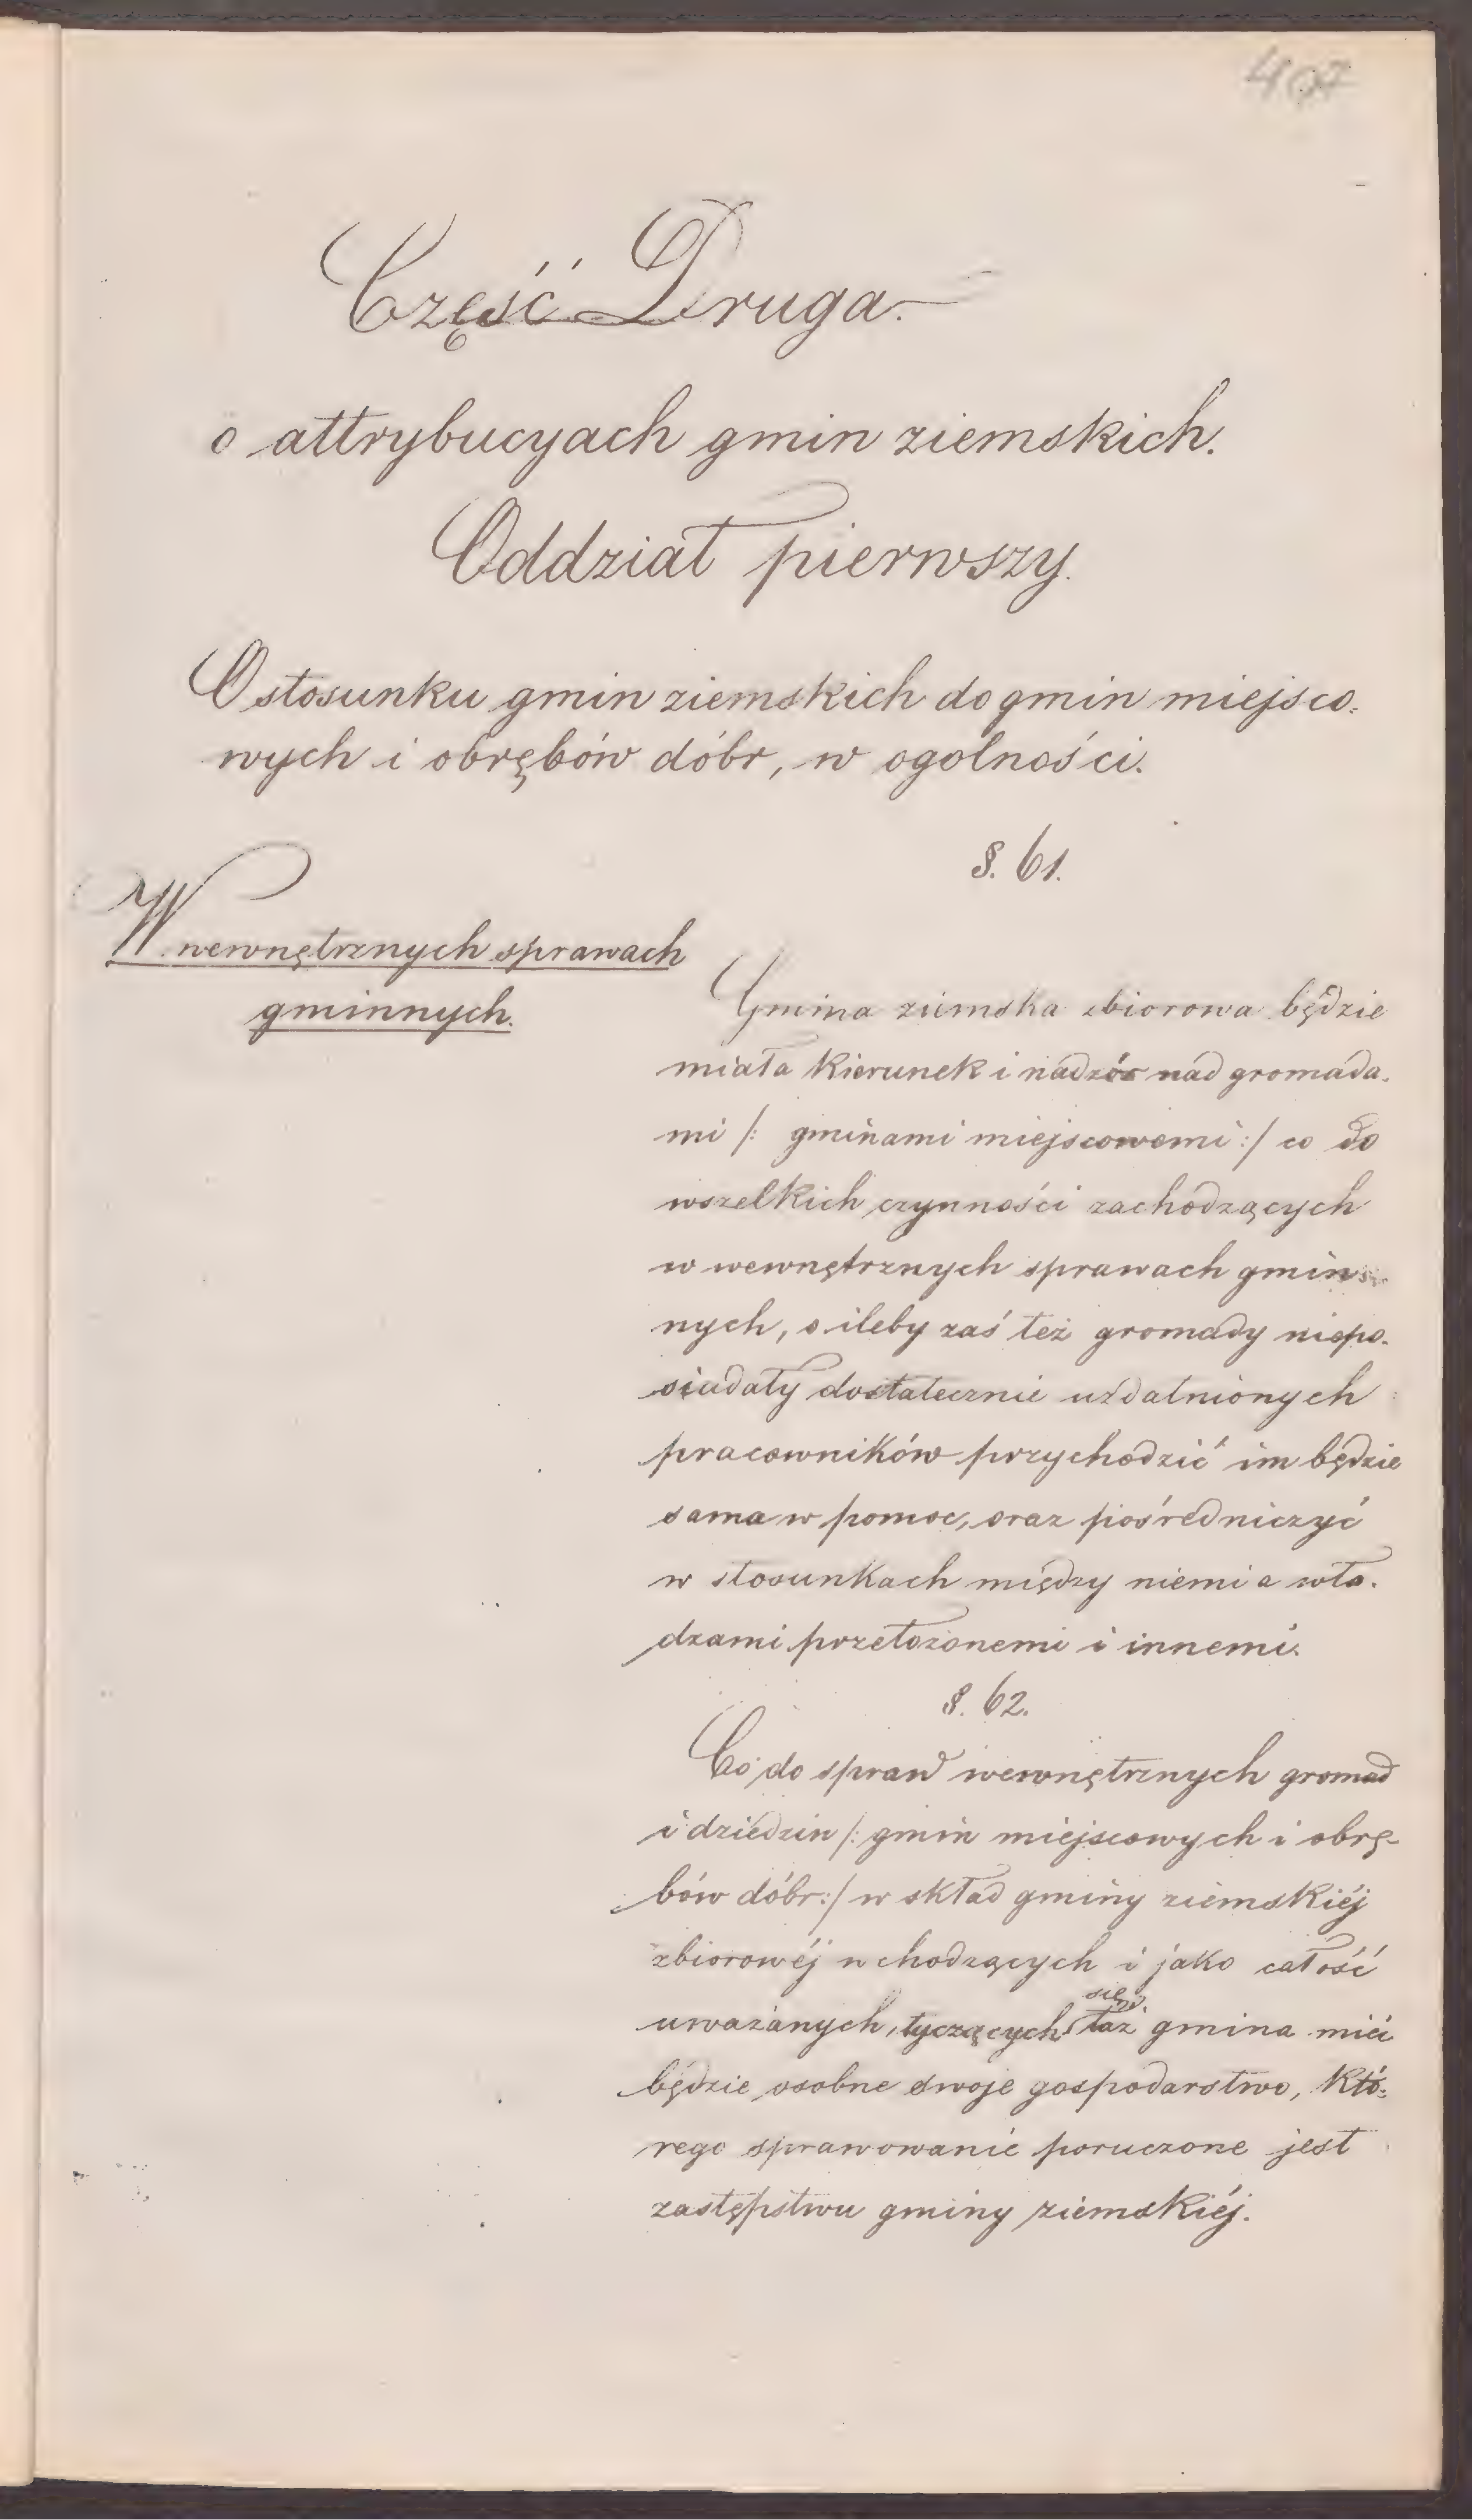 407
Część Druga.
o attrybucyach gmin ziemskich.
Oddział pierwszy.
O stosunku gmin ziemskich do gmin miejsco-
wych i obrębów dóbr, w ogolności.
§. 61.
W wewnętrznych sprawach
gminnych.
Gmina ziemska zbiorowa będzie
miała kierunek i nadzór nad gromada-
mi /: gminami miejscowemi :/ co do
wszelkich czynności zachodzących
w wewnętrznych sprawach gmin-
nych, o ileby zaś też gromady niepo-
siadały dostatecznie uzdatnionych
pracowników przychodzić im będzie
sama w pomoc, oraz pośredniczyć
w stosunkach między niemi a wła-
dzami przełożonemi i innemi.
§. 62.
Co do spraw wewnętrznych gromad
i dziedzin /: gmin miejscowych i obrę-
bów dóbr :/ w skład gminy ziemskiéj
zbiorowéj wchodzących i jako całość
uważanych, tyczących się, taż gmina mieć
będzie osobne swoje gospodarstwo, któ-
rego sprawowanie poruczone jest
zastępstwu gminy ziemskiéj.